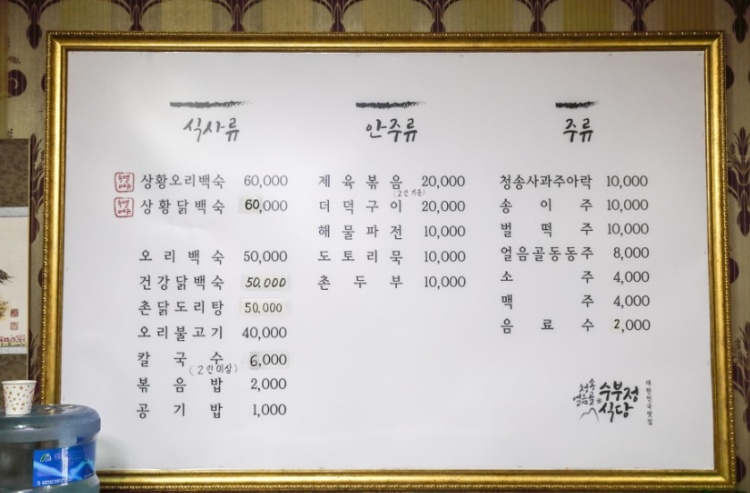 식사류
상황오리백숙 60,000
상황닭백숙 60,000
오리백숙 50,000
건강닭백숙 50.000
촌닭도리탕 50,000
오리불고기 40,000
칼국수 6,000
(2인이상)
볶음밥 2,000
공기밥 1,000
안주류
제육볶음 20,000
더덕구이 20,000
해물파전 10,000
도토리묵 10,000
촌두부 10,000
주류
청송사과주아락 10,000
송이주 10,000
벌떡주 10,000
얼음골동동주 8,000
소주 4,000
맥주 4,000
음료수 2,000
청송
얼음골
수부정
식당
대한민국맛집